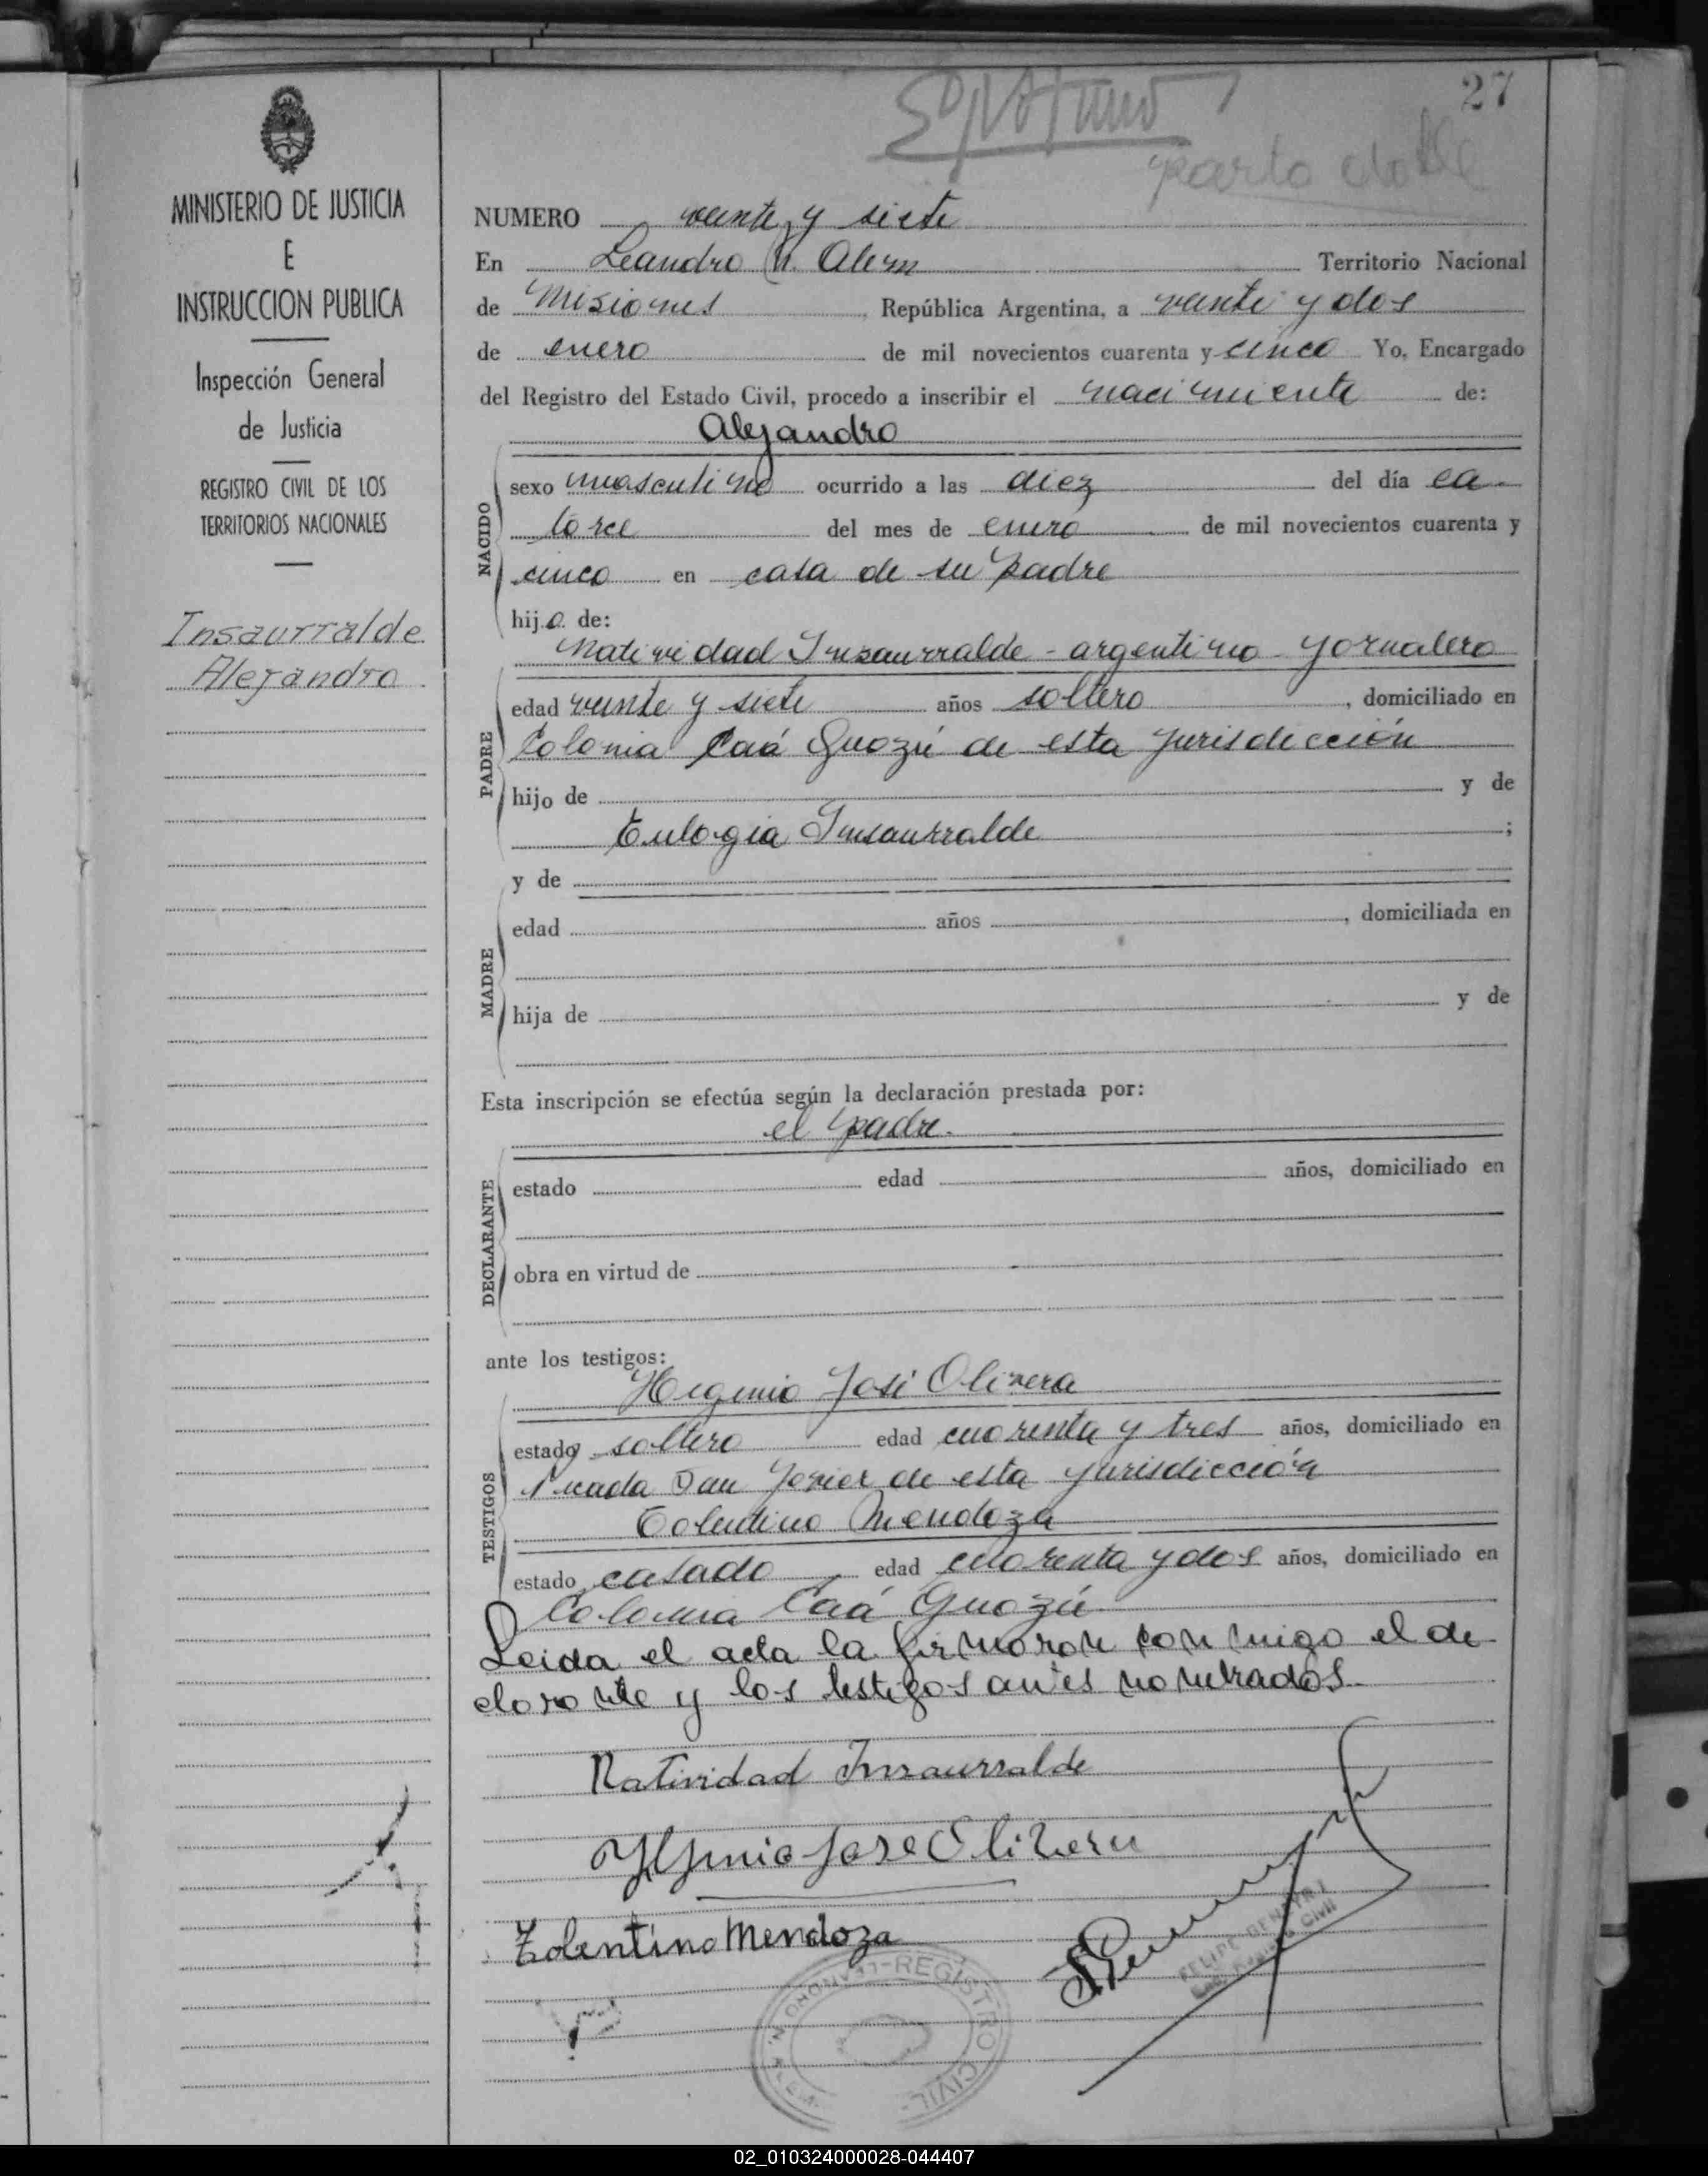 27
parto doble
MINISTERIO DE JUSTICIA
E
INSTRUCCION PUBLICA
Inspección General
de Justicia
REGISTRO CIVIL DE LOS
TERRITORIOS NACIONALES
Insaurralde
Alejandro
NUMERO veinte y siete
En Leandro N. Alem Territorio Nacional
de Misiones, República Argentina, a veinte y dos
de enero de mil novecientos cuarenta y cinco Yo, Encargado
del Registro del Estado Civil, procedo a inscribir el nacimiento de:
Alejandro
NACIDO
sexo masculino ocurrido a las diez del día ca-
torce del mes de enero de mil novecientos cuarenta y
cinco en casa de su padre
hijo de:
Natividad Insaurralde - argentino - jornalero
PADRE
edad veinte y siete años soltero, domiciliado en
Colonia Caá Guazú de esta jurisdicción
hijo de y de
Eulogia Insaurralde ;
y de
MADRE
edad años , domiciliada en
hija de y de
Esta inscripción se efectúa según la declaración prestada por:
el padre.
DECLARANTE
estado edad años, domiciliado en
obra en virtud de
ante los testigos:
Higinio José Olivera
TESTIGOS
estado soltero edad cuarenta y tres años, domiciliado en
Picada San Javier de esta jurisdicción
Tolentino Mendoza
estado casado edad cuarenta y dos años, domiciliado en
Colonia Caá Guazú
Leida el acta la firmaron conmigo el de-
clarante y los testigos antes nombrados.
Natividad Insaurralde
Higinio Jose Olivera
Tolentino Mendoza
FELIPE
REGISTRO CIVIL - LEANDRO N. ALEM
02_010324000028-044407